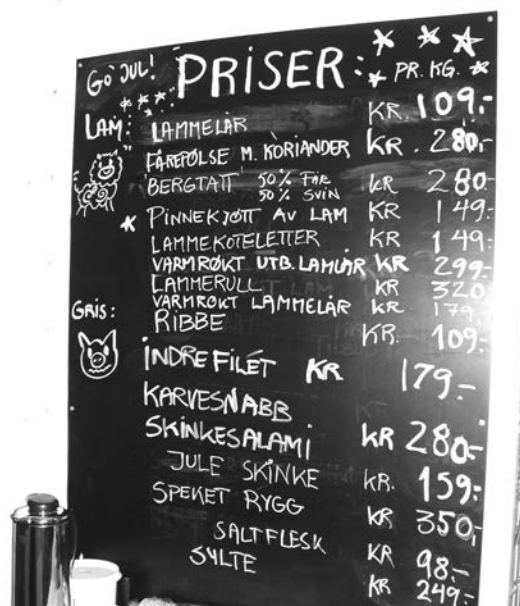 GO' JUL! PRISER: PR. KG.
LAM: LAMMELÅR KR. 109,-
FÅREPØLSE M. KORIANDER KR. 280,-
"BERGTATT" 50% FÅR KR 280
50% SVIN
PINNEKJØTT AV LAM KR 149,-
LAMMEKOTELETTER KR 149,-
VARMRØKT UTB. LAMLÅR KR 299,-
LAMMERULL KR 320
VARMRØKT LAMMELÅR KR 179,-
GRIS: RIBBE KR. 109,-
INDREFILÉT KR 179,-
KARVESNABB
SKINKESALAMI KR 280,-
JULE SKINKE KR. 159,-
SPEKET RYGG KR 350,-
SALTFLESK KR 98,-
SYLTE KR 249,-